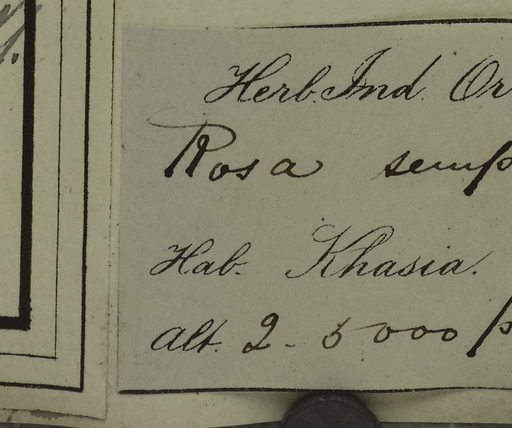 Herb. Ind. Or
Rosa semp
Hab. Khasia.
Alt. 2-5000 p